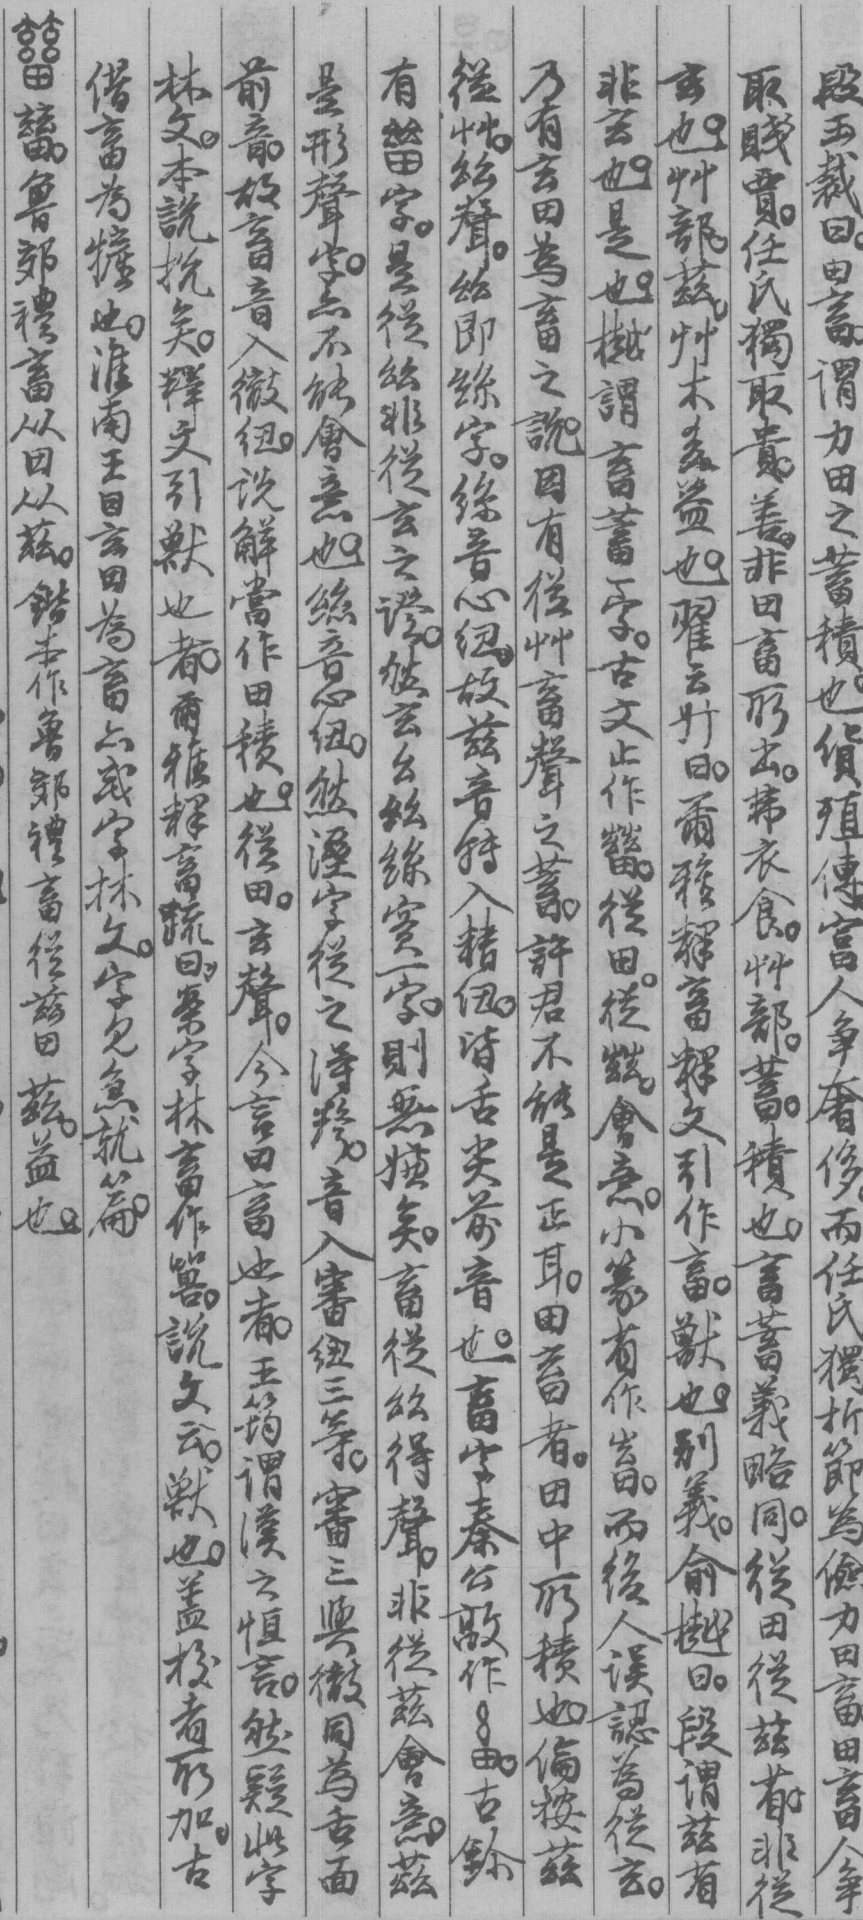 段玉裁曰。田畜。謂力田之蓄積也。貨殖傳。富人爭奢侈。而任氏獨折節為儉。力田畜。田畜人爭
取賤賈。任氏獨取貴善。非田畜所出。弗衣食。艸部。蓄。積也。畜蓄義略同。從田從茲者。非從
玄也。艸部。茲。艸木多益也。翟云升曰。爾雅釋畜釋文引作畜。獸也。別義。俞樾曰。段謂茲省
非玄也。是也。樾謂畜蓄一字。古文止作䕼。從田。從茲。會意。小篆省作畜。而後人誤認為從玄。
乃有玄田為畜之說。因有從艸畜聲之蓄。許君不能是正耳。田畜者。田中所積也。倫按茲
從艸。絲聲。即絲字。絲音心紐。故茲音轉入精紐。皆舌尖前音也。畜字秦公敦作。古鉨
有字。是從絲非從玄之證。然玄幺絲實一字。則無嫌矣。畜從得聲。非從茲會意。茲
是形聲字。亦不能會意也。絲音心紐。然溼字從之得聲。音入審紐三等。審三與徹同為舌面
前音。故畜音入徹紐。說解當作田積也。從田。玄聲。今言田畜也者。王筠謂漢之恒言。然疑此字
林文。本說挩矣。釋文引獸也者。爾雅釋畜疏曰。案字林畜作嘼。說文云。獸也。蓋校者所加。古
借畜為㹌也。淮南王曰玄田為畜亦或字林文。字見急就篇。
䕼。魯郊禮畜从田从茲。鍇本作魯郊禮畜從茲田 茲。益也。